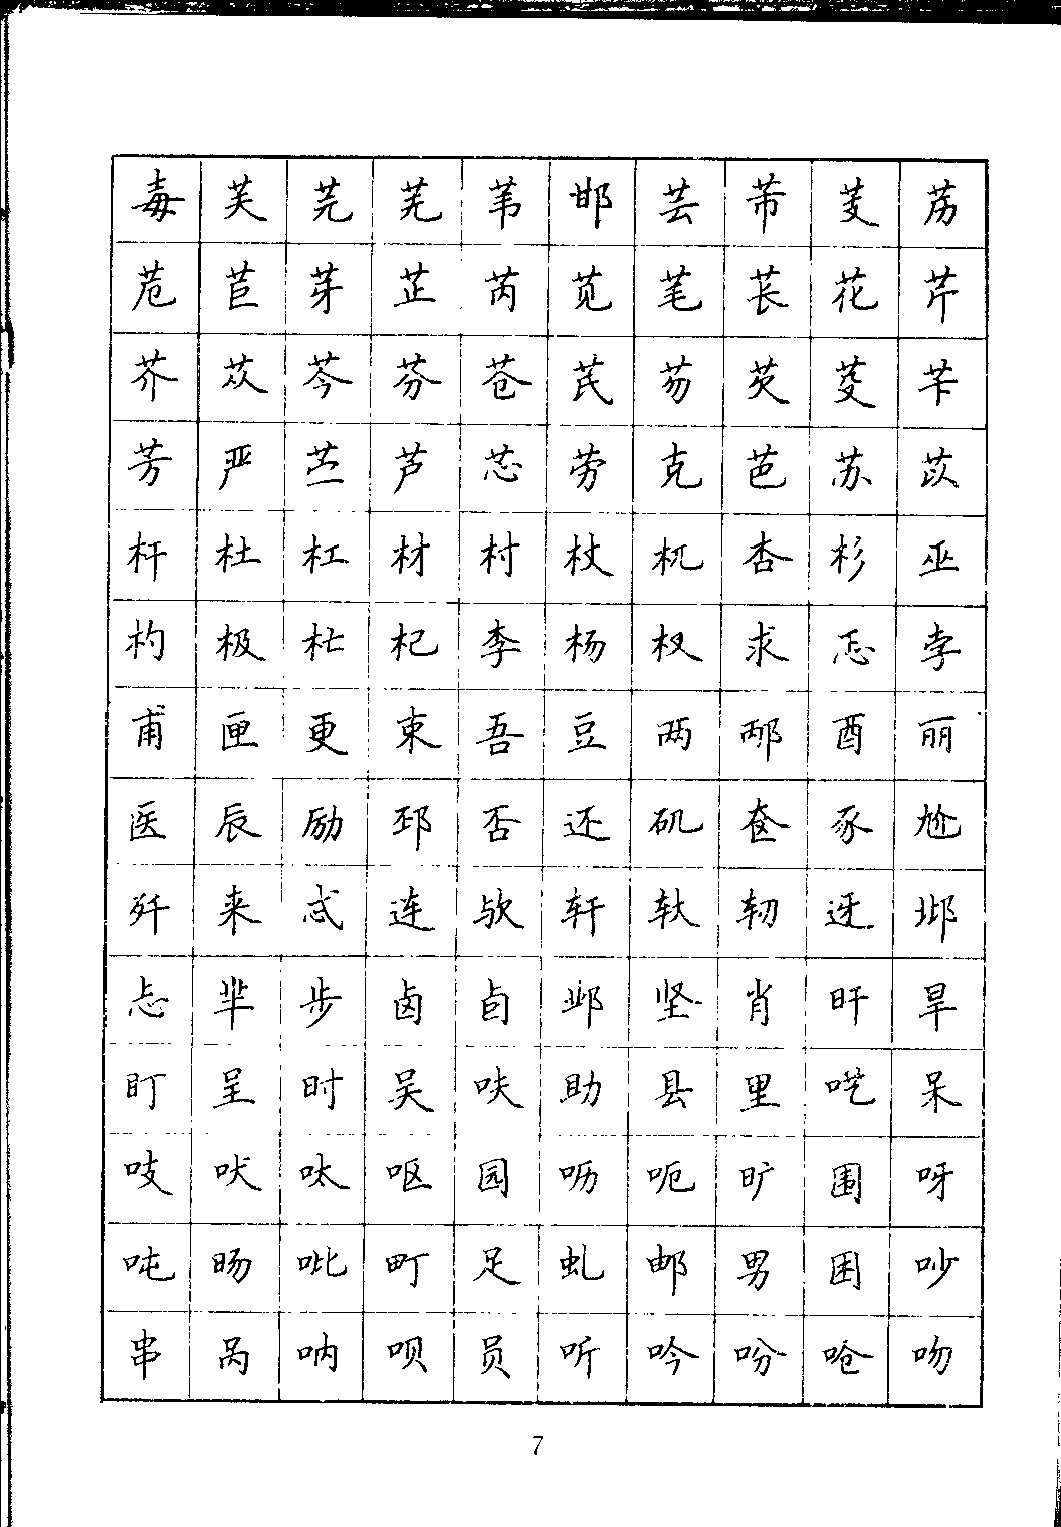 毐芙芫芜苇邯芸芾芰苈
苊苣芽芷芮苋芼苌花芹
芥苁芩芬苍芪芴芡芟苄
芳严苎芦芯劳克芭苏苡
杆杜杠材村杖杌杏杉巫
杓极杧杞李杨杈求忑孛
甫匣更束吾豆两邴酉丽
医辰励邳否还矶奁豕尬
歼来忒连欤轩轪轫迓邶
忐芈步卤卣邺坚肖旰旱
盯呈时吴呋助县里呓呆
吱吠呔呕园呖呃旷围呀
吨旸吡町足虬邮男困吵
串呙呐呗员听吟吩呛吻
7